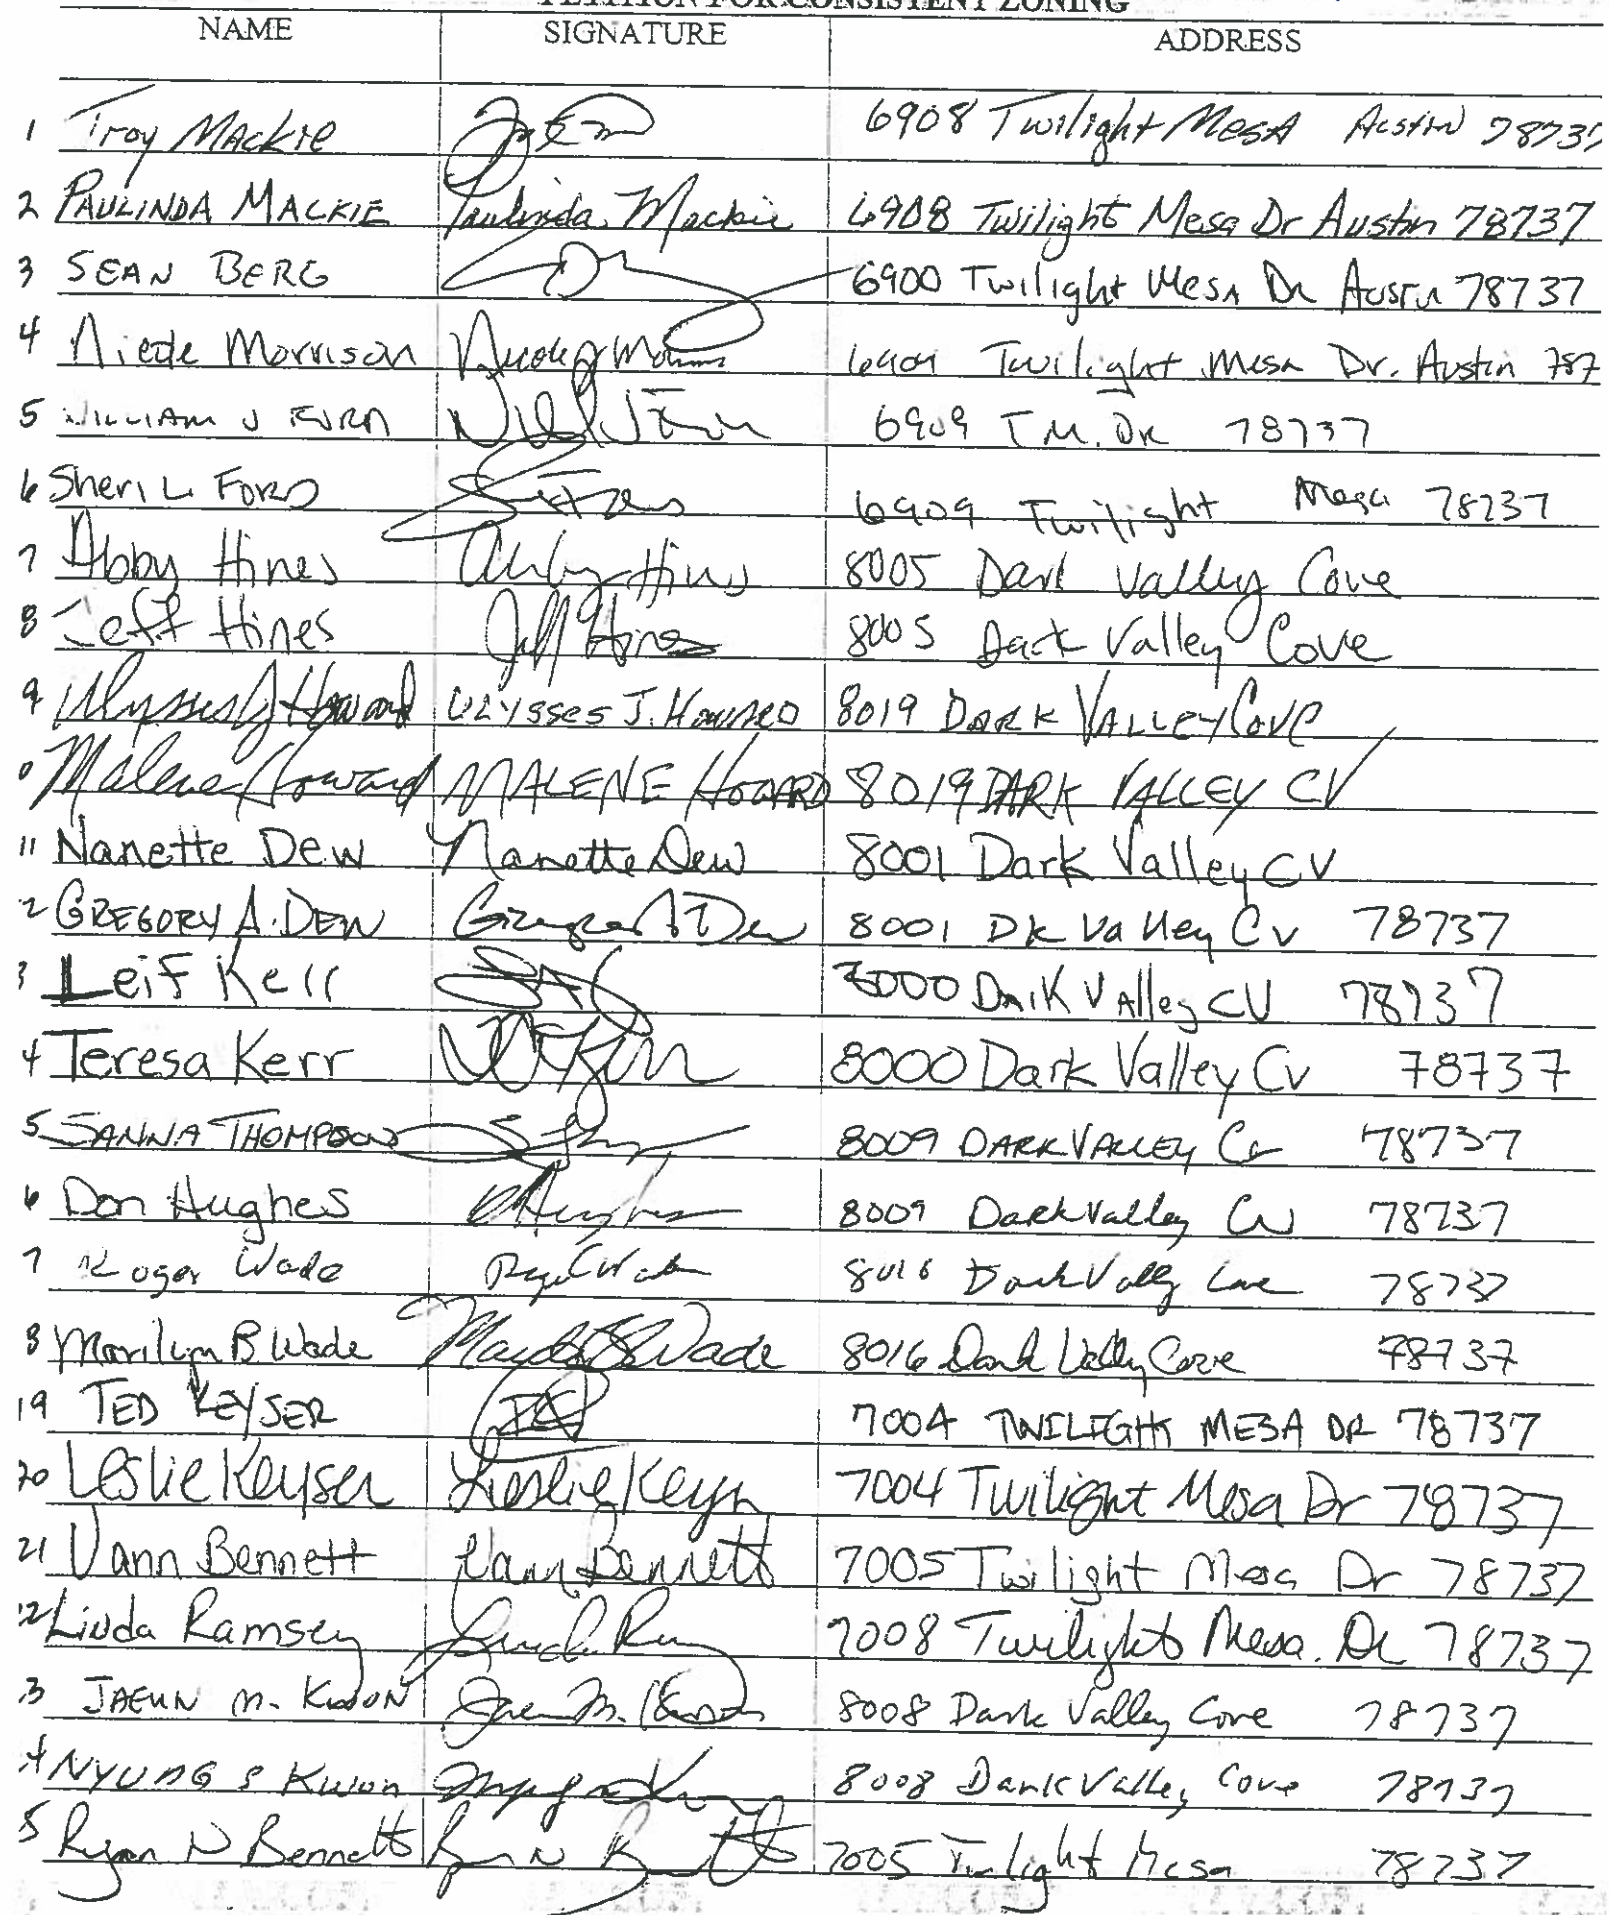 PETITION FOR CONSISTENT ZONING
NAME SIGNATURE ADDRESS
1 Troy Mackie 6908 Twilight Mesa Austin 78737
2 PAULINDA MACKIE Paulinda Mackie 6908 Twilight Mesa Dr Austin 78737
3 SEAN BERG 6900 Twilight Mesa Dr Austin 78737
4 Nicole Morrison 6909 Twilight Mesa Dr. Austin 787
5 WILLIAM J FORD 6909 T.M. DR 78737
6 Sheri L. FORD 6909 Twilight Mesa 78737
7 Abby Hines Abby Hines 8005 Dark Valley Cove
8 Jeff Hines Jeff Hines 8005 Dark Valley Cove
9 Ulysses J Howard ULYSSES J. HOWARD 8019 DARK VALLEY COVE
0 Malene Howard MALENE HOWARD 8019 DARK VALLEY CV
11 Nanette Dew Nanette Dew 8001 Dark Valley CV
2 GREGORY A. DEW Gregory A Dew 8001 DK Valley Cv 78737
3 Leif Kerr 8000 Dark Valley CV 78737
4 Teresa Kerr 8000 Dark Valley Cv 78737
5 SANNA THOMPSON 8009 DARK VALLEY Cv 78737
6 Don Hughes D Hughes 8009 Dark Valley Cv 78737
7 Roger Wade 8016 Dark Vally Cove 78737
8 Marilyn B. Wade Wade 8016 Dark Valley Cove 78737
19 TED KEYSER 7004 TWILIGHT MESA DR 78737
20 Leslie Keyser Leslie Keyser 7004 Twilight Mesa Dr 78737
21 Vann Bennett Vann Bennett 7005 Twilight Mesa Dr 78737
2 Linda Ramsey 7008 Twilight Mesa. Dr 78737
3 JAEUN M. KWON 8008 Dark Valley Cove 78737
4 NYUNG S Kwon 8008 Dark Valley Cove 78737
5 Ryan N Bennett Ryan N Bennett 7005 Twilight Mesa 78737